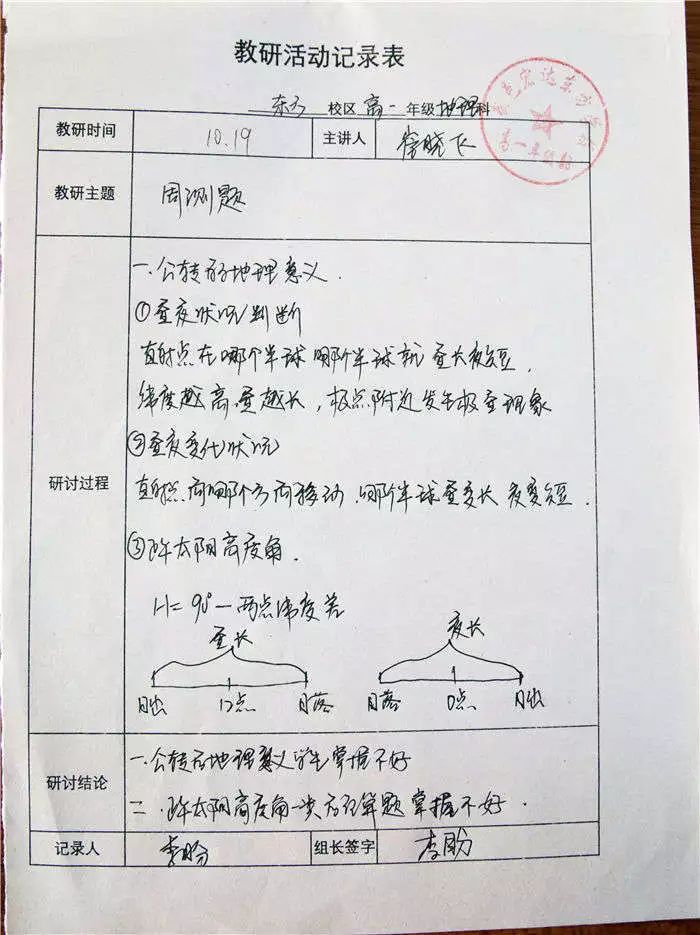 教研活动记录表
东方 校区 高一 年级 地理 科
教研时间 10.19 主讲人 晓飞
教研主题 周测题
研讨过程
一.公转的地理意义.
①昼夜状况判断
直射点在哪个半球 哪个半球就昼长夜短.
纬度越高,昼越长,极点附近发生极昼现象
②昼夜变化状况
直射点向哪个方向移动.哪个半球昼变长 夜变短.
③正午太阳高度角.
H=90°-两点纬度差
昼长 夜长
日出 12点 日落 日落 0点 日出
研讨结论
一.公转的地理意义学生掌握不好
二.正午太阳高度角一类的计算题掌握不好.
记录人 李盼 组长签字 李盼
宏达东方
高一年级部